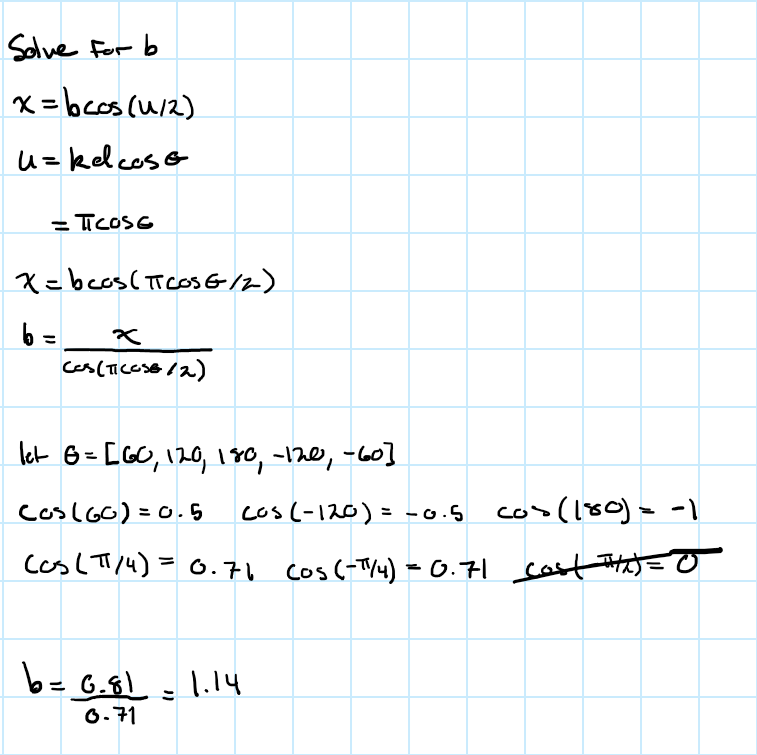 Solve For b
x = b cos(u/2)
u = kd cos θ
= π cos θ
x = b cos(π cos θ/2)
b = x / cos(π cos θ/2)
let θ = [60, 120, 180, -120, -60]
cos(60) = 0.5 cos(-120) = -0.5 cos(180) = -1
cos(π/4) = 0.71 cos(-π/4) = 0.71 cos(-π/2) = 0
b = 0.81 / 0.71 = 1.14